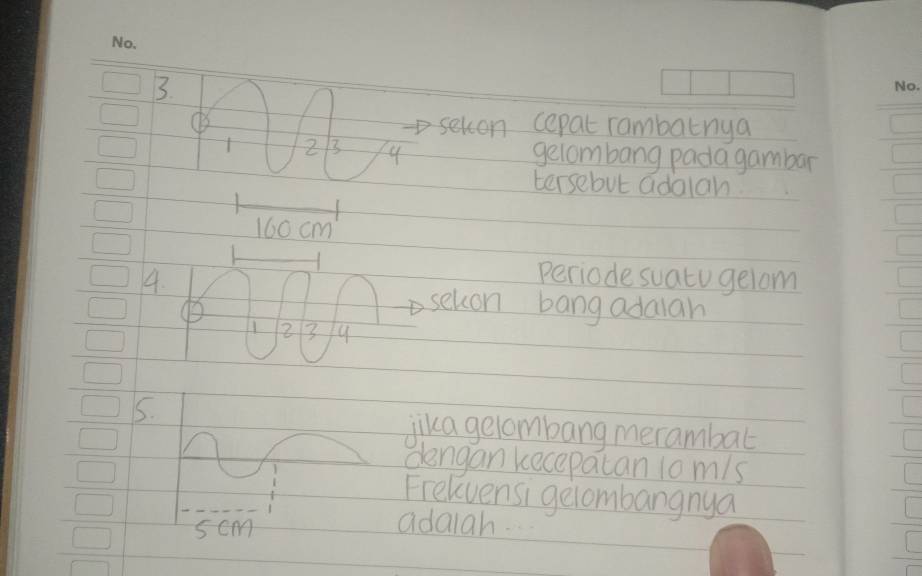 No.
No.
3.
0
1
2
3
4
sekon
cepat rambatnya
gelombang pada gambar
tersebut adalah....
160 cm
4.
0
1
2
3
4
sekon
Periode suatu gelom
bang adalah
5.
jika gelombang merambat
dengan kecepatan 10 m/s
Frekuensi gelombangnya
adalah...
5 cm